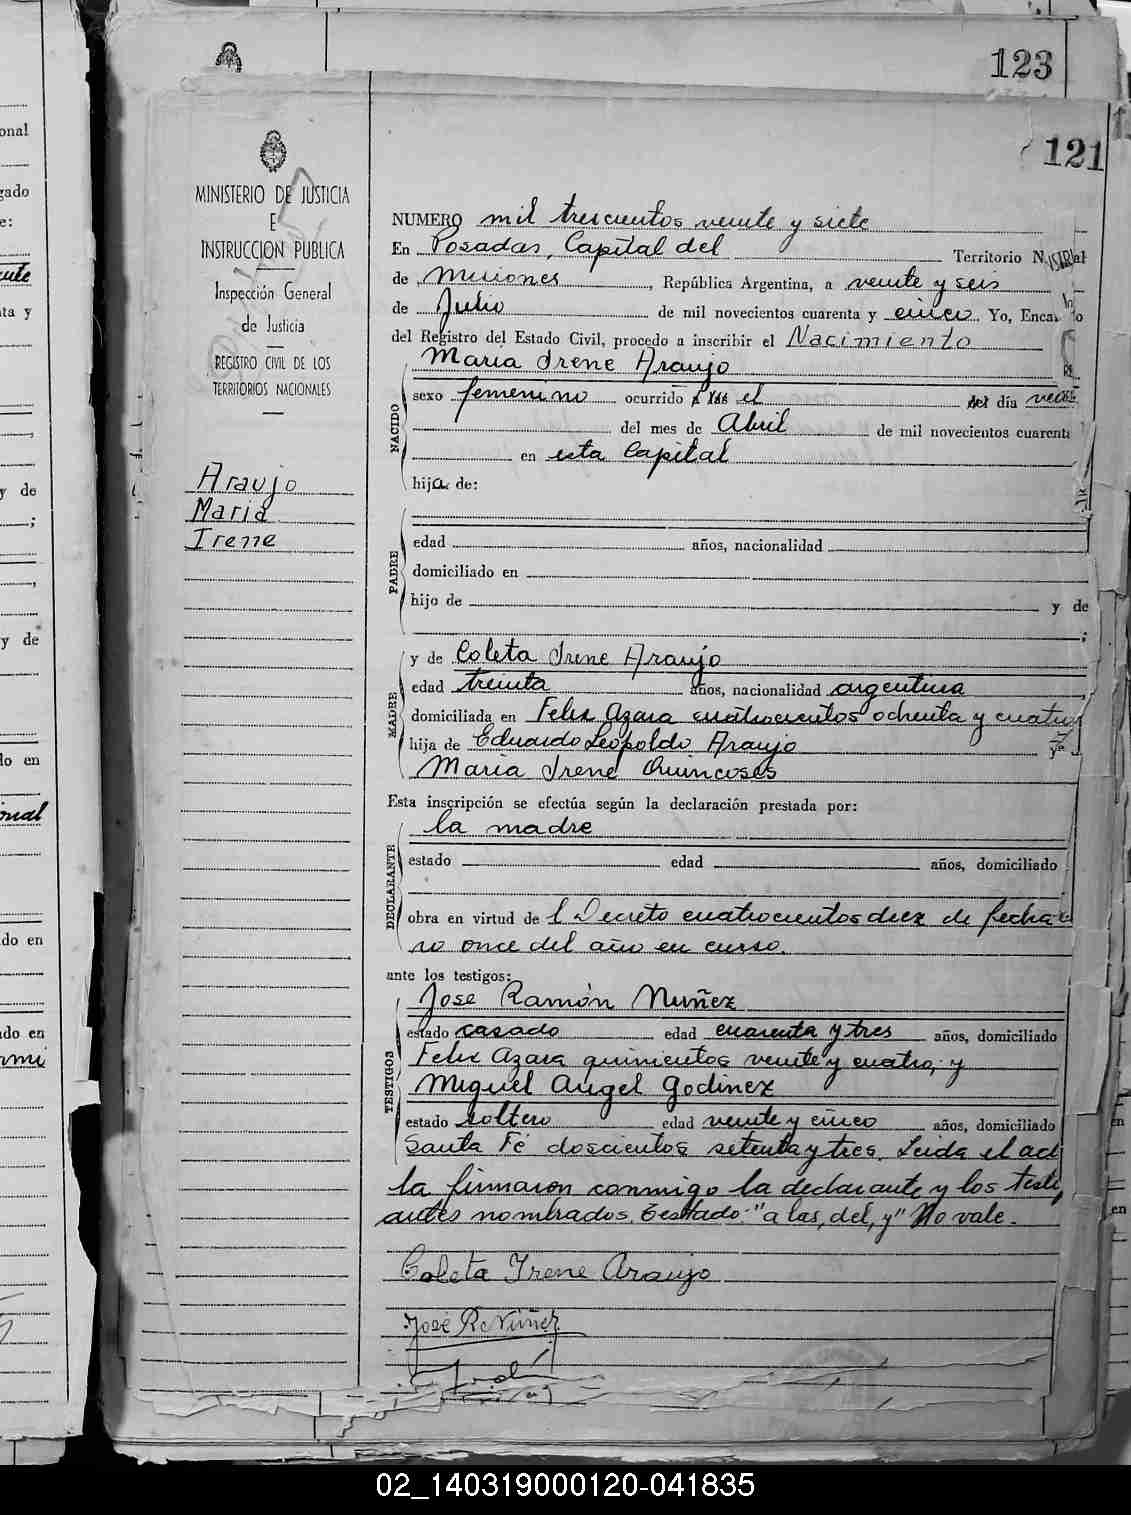 123
121
MINISTERIO DE JUSTICIA
E
INSTRUCCION PUBLICA
Inspección General
de Justicia
REGISTRO CIVIL DE LOS
TERRITORIOS NACIONALES
Araujo
Maria
Irene
NUMERO mil trescientos veinte y siete
En Posadas, Capital del Territorio
de Misiones, República Argentina, a veinte y seis
de Julio de mil novecientos cuarenta y cinco Yo,
del Registro del Estado Civil, procedo a inscribir el Nacimiento
NACIDO
Maria Irene Araujo
sexo femenino ocurrido el día
del mes de Abril de mil novecientos
en esta Capital
hija de:
PADRE
edad años, nacionalidad
domiciliado en
hijo de y de
;
MADRE
y de Coleta Irene Araujo
edad treinta años, nacionalidad argentina
domiciliada en Felix Azara cuatrocientos ochenta y cuatro
hija de Eduardo Leopoldo Araujo y
Maria Irene Quincoses
Esta inscripción se efectúa según la declaración prestada por:
DECLARANTE
la madre
estado edad años, domiciliado
obra en virtud de l Decreto cuatrocientos diez de fecha
ro once del año en curso.
ante los testigos:
TESTIGOS
Jose Ramón Nuñez
estado casado edad cuarenta y tres años, domiciliado
Felix Azara quinientos veinte y cuatro; y
Miguel Angel Godinez
estado soltero edad veinte y cinco años, domiciliado
Santa Fé doscientos setenta y tres. Leida el
la firmaron conmigo la declarante y los
antes nombrados. Testado: "a las, del, y" No vale.
Coleta Irene Araujo
José R. Núñez
02_140319000120-041835